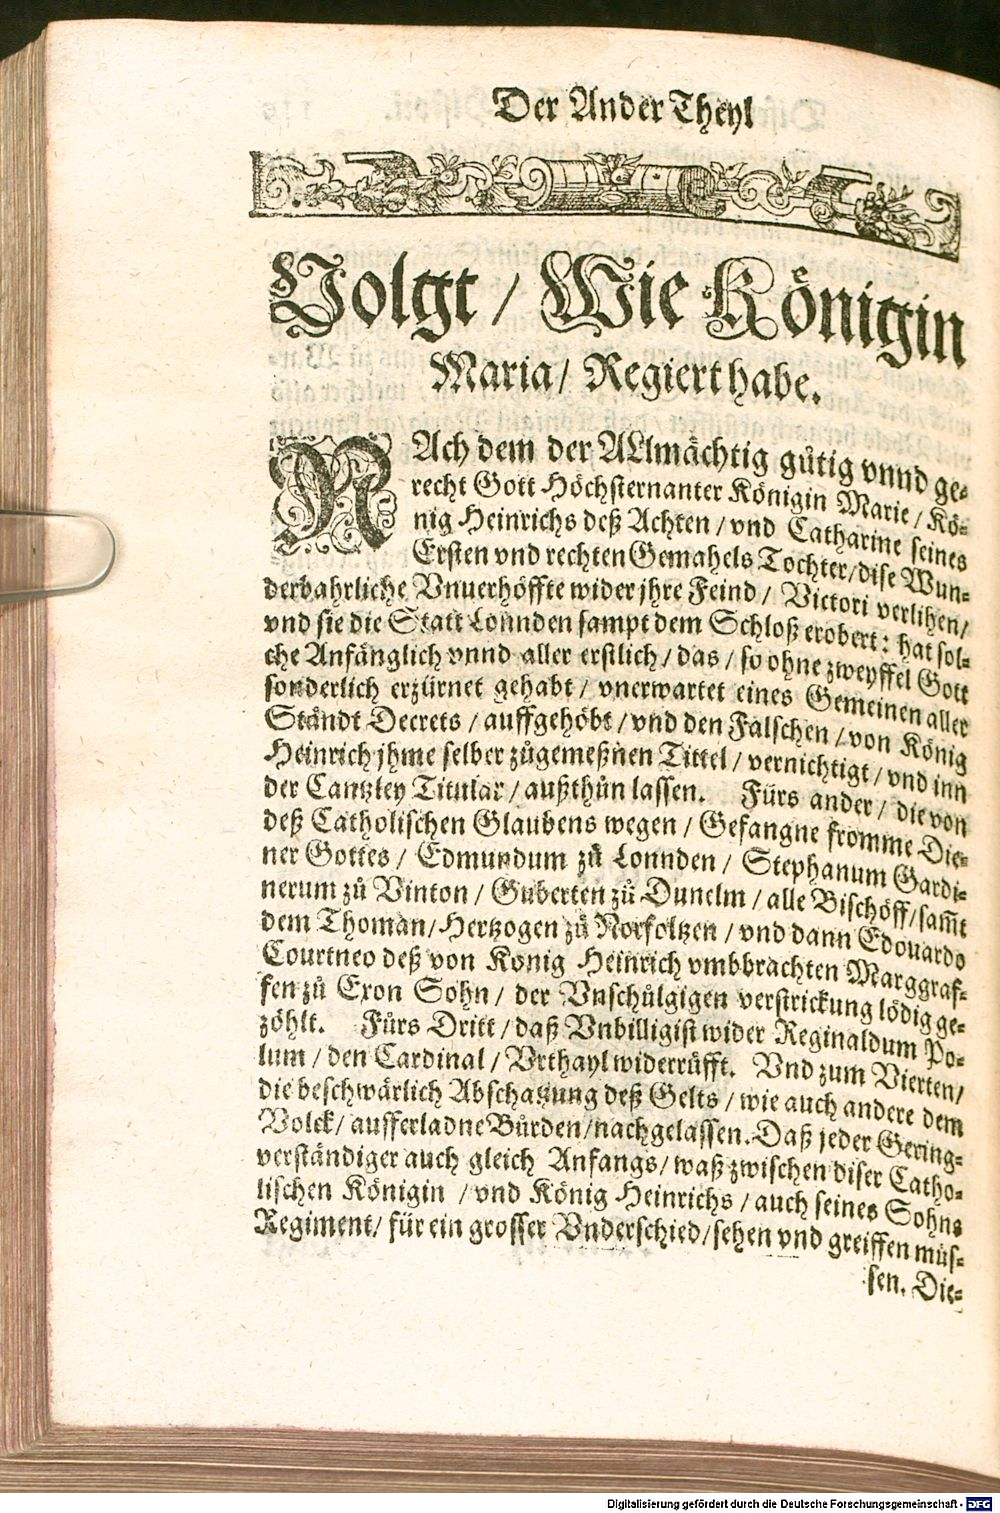 Der Ander Theyl
Volgt / Wie Königin
Maria / Regiert habe.
NAch dem der ALlmächtig gůtig vnnd ge-
recht Gott Höchsternanter Königin Marie / Kö-
nig Heinrichs deß Achten / vnd Catharine seines
Ersten vnd rechten Gemahels Tochter / dise Wun-
derbahrliche Vnuerhöffte wider jhre Feind / Victori verlihen /
vnd sie die Statt Lonnden sampt dem Schloß erobert: hat sol-
che Anfänglich vnnd aller erstlich / das / so ohne zweyffel Gott
sonderlich erzürnet gehabt / vnerwartet eines Gemeinen aller
Ständt Decrets / auffgehöbt / vnd den Falschen / von König
Heinrich jhme selber zůgemeßnen Tittel / vernichtigt / vnd inn
der Cantzley Titular / außthůn lassen. Fürs ander / die von
deß Catholischen Glaubens wegen / Gefangne fromme Die-
ner Gottes / Edmundum zů Lonnden / Stephanum Gardi-
nerum zů Vinton / Guberten zů Dunelm / alle Bischöff / sam̃t
dem Thoman / Hertzogen zů Norfoltzen / vnd dann Edouardo
Courtneo deß von König Heinrich vmbbrachten Marggraf-
fen zů Exon Sohn / der Vnschůlgigen verstrickung lödig ge-
zöhlt. Fürs Dritt / daß Vnbilligist wider Reginaldum Po-
lum / den Cardinal / Vrthayl widerrůfft. Vnd zum Vierten /
die beschwärlich Abschatzung deß Gelts / wie auch andere dem
Volck / aufferladne Bürden / nachgelassen. Daß jeder Gering-
verständiger auch gleich Anfangs / waß zwischen diser Catho-
lischen Königin / vnd König Heinrichs / auch seines Sohns
Regiment / für ein grosser Vnderschied / sehen vnd greiffen müs-
sen. Die-
Digitalisierung gefördert durch die Deutsche Forschungsgemeinschaft - DFG